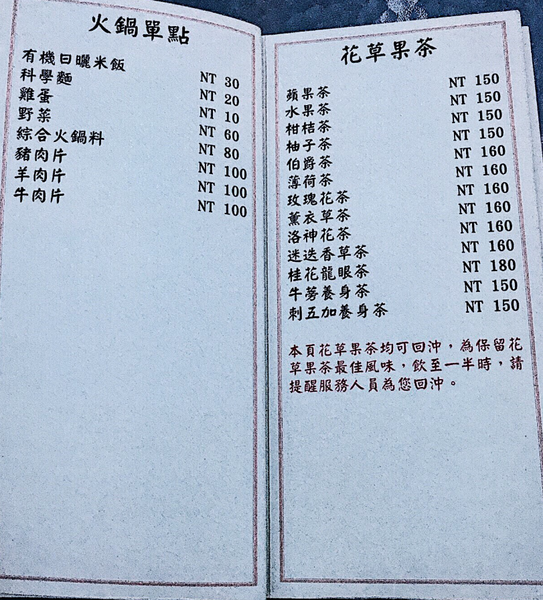 火鍋單點
有機日曬米飯 NT 30
科學麵 NT 20
雞蛋 NT 10
野菜 NT 60
綜合火鍋料 NT 80
豬肉片 NT 100
羊肉片 NT 100
牛肉片 NT 100
花草果茶
蘋果茶 NT 150
水果茶 NT 150
柑桔茶 NT 150
柚子茶 NT 150
伯爵茶 NT 160
薄荷茶 NT 160
玫瑰花茶 NT 160
薰衣草茶 NT 160
洛神花茶 NT 160
迷迭香草茶 NT 160
桂花龍眼茶 NT 180
牛蒡養身茶 NT 150
刺五加養身茶 NT 150
本頁花草果茶均可回沖，為保留花
草果茶最佳風味，飲至一半時，請
提醒服務人員為您回沖。